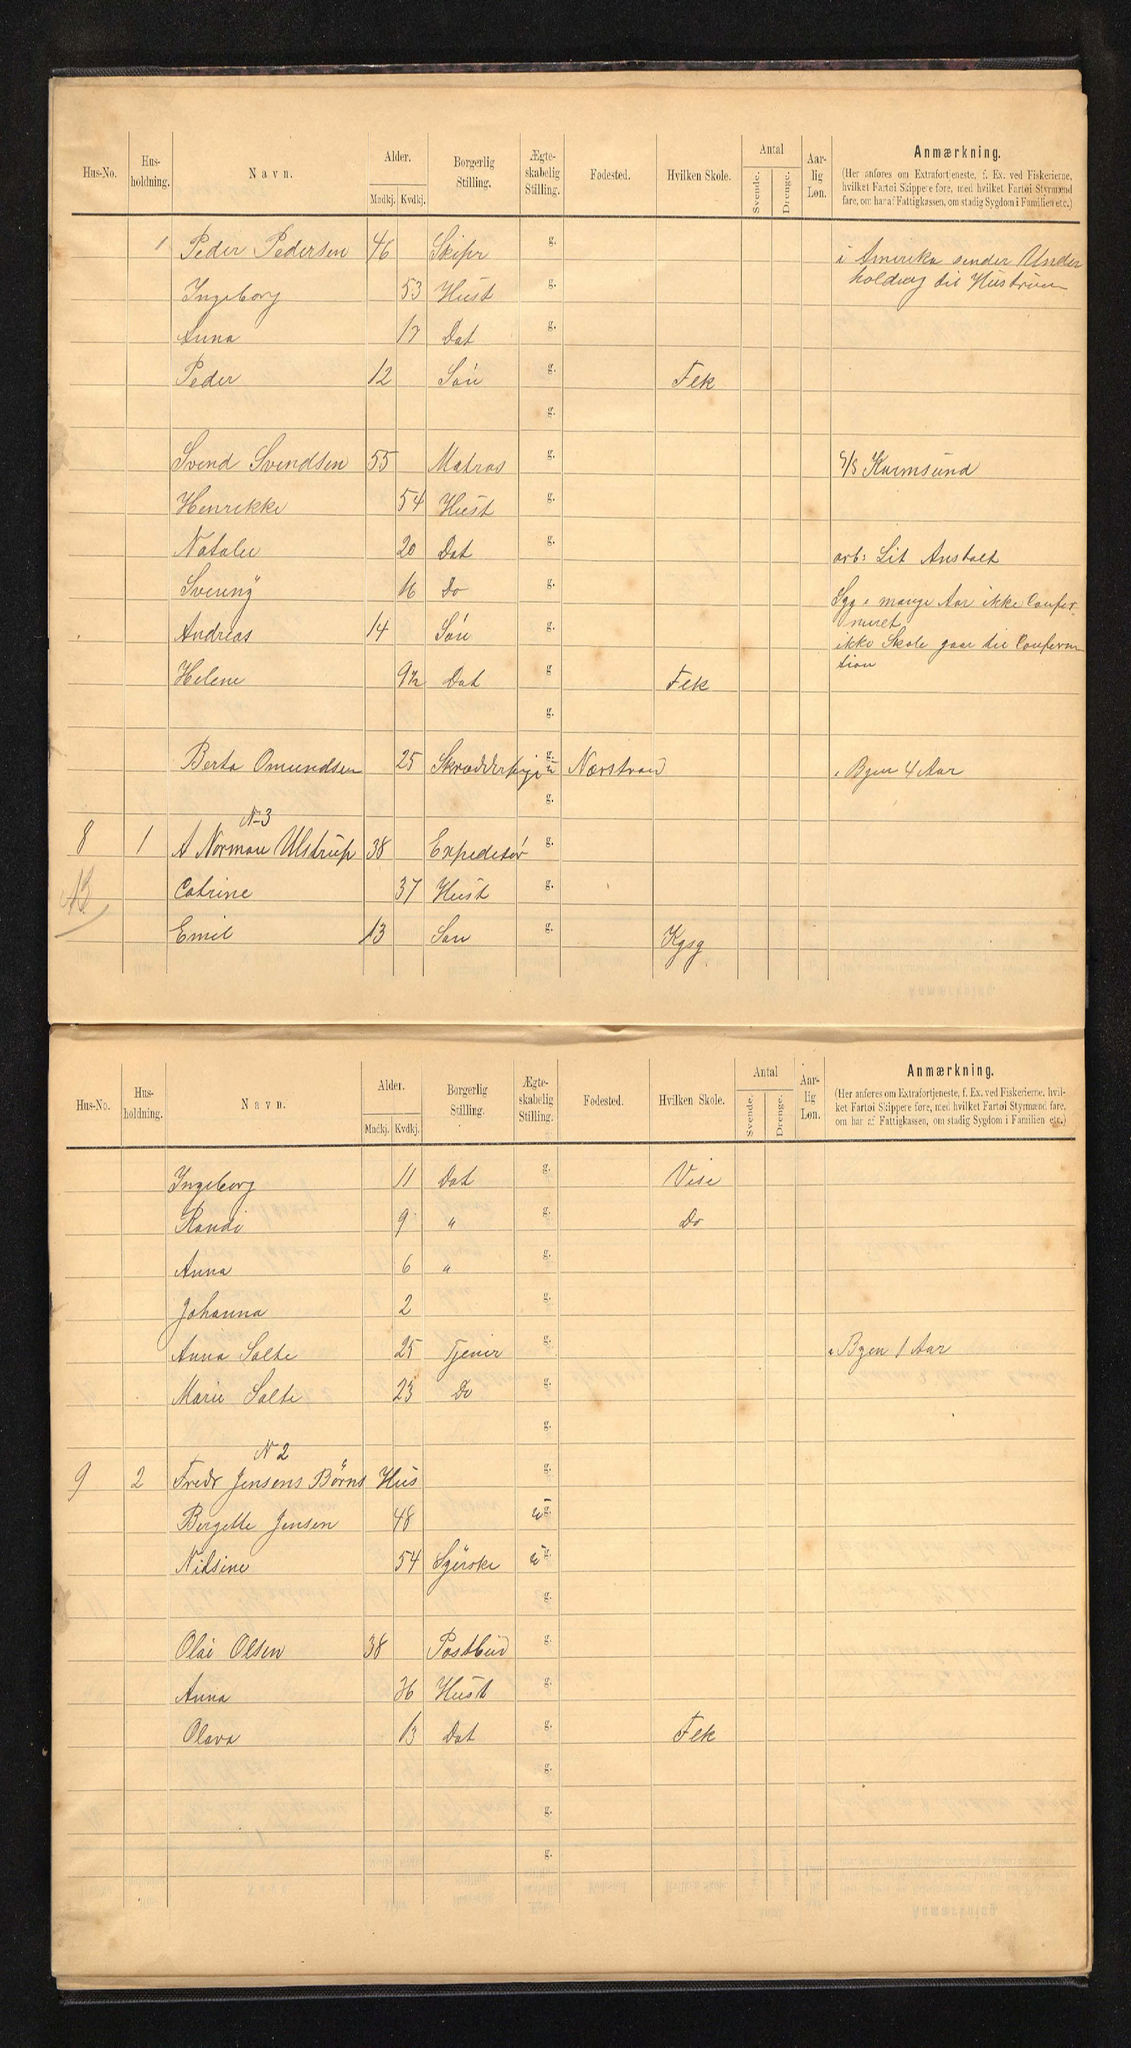 Hus-No. Hus-holdning. Navn. Alder. Mndkj. Kvdkj. Borgerlig Stilling. Ægte-skabelig Stilling. Fødested. Hvilken Skole. Antal Svende. Drenge. Aar-lig Løn. Anmærkning.
(Her anføres om Extrafortjeneste, f. Ex. ved Fiskerierne,
hvilket Fartøi Skippere føre, med hvilket Fartøi Styrmænd
fare, om har af Fattigkassen, om stadig Sygdom i Familien etc.)
1 Peder Pedersen 46 Skipr g. i Amerika sender Under
Ingeborg 53 Hust g. holdning til Hustruen
Anna 17 Dat g.
Peder 12 Søn g. Fek
g.
Svend Svendsen 55 Matros g. S/S Karmsund
Henrikke 54 Hust g.
Natalie 20 Dat g. arb: Lit Anstalt
16 Do g. Syg i mange Aar ikke Confir-
Andreas 14 Søn g. meret
ikke Skole gaar til Confirma
tion
Helene 9½ Dat g Fek
g.
Berta Omundsen 25 g. Nærstrand i Byen 4 Aar
g.
N-3
8 1 A Norman Ulstrup 38 Expeditør g.
Catrine 37 Hust g.
Emil 13 Søn g. Kgsg.
Hus-No. Hus-holdning. Navn. Alder. Mndkj. Kvdkj. Borgerlig Stilling. Ægte-skabelig Stilling. Fødested. Hvilken Skole. Antal Svende. Drenge. Aar-lig Løn. Anmærkning.
(Her anføres om Extrafortjeneste, f. Ex. ved Fiskerierne, hvil-
ket Fartøi Skippere føre, med hvilket Fartøi Styrmænd fare,
om har af Fattigkassen, om stadig Sygdom i Familien etc.)
Ingeborg 11 Dat g. Vise
Randi 9 " g. Do
Anna 6 " g.
Johanna 2 g.
Anna Salte 25 Tjener g. i Byen 1 Aar
Marie Salte 23 Do g.
g.
N 2
9 2 Fredr Jensens Børns Hus g.
Bergette Jensen 48 g.
Nilsine 54 Syerske g.
g.
Olai Olsen 38 Postbud g.
Anna 36 Hust g.
Olava 13 Dat g. Fek
g.
g.
g.